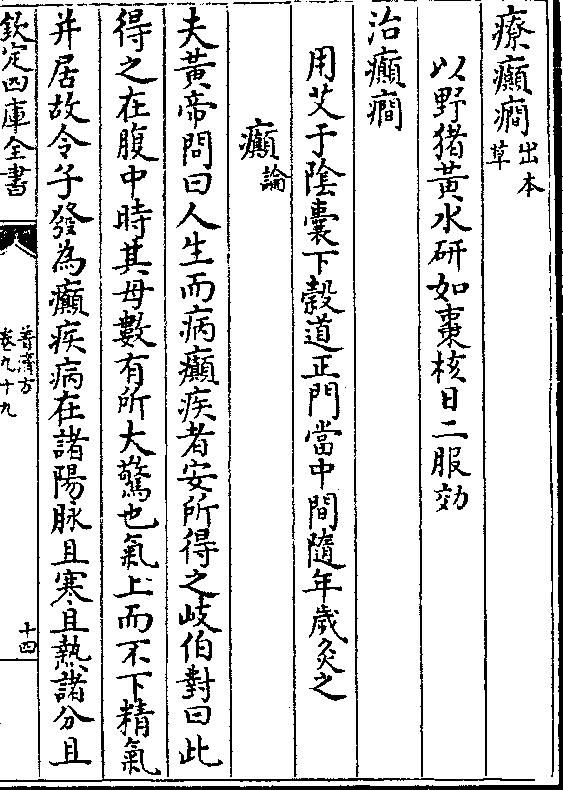 療癲癎出本草
以野猪黃水研如棗核日二服効
治癲癎
用艾于陰囊下穀道正門當中間隨年歲灸之
癲論
夫黃帝問曰人生而病癲疾者安所得之岐伯對曰此
得之在腹中時其母數有所大驚也氣上而不下精氣
并居故令子發為癲疾病在諸陽脉且寒且熱諸分且
欽定四庫全書
普濟方
卷九十九
十四